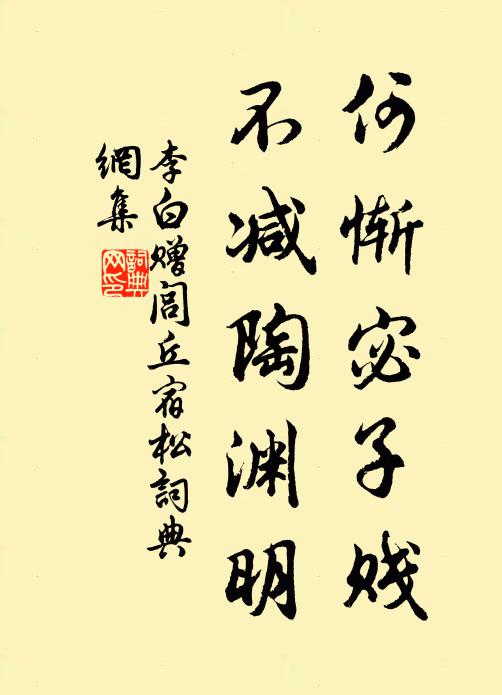 何慚宓子贱
不减陶渊明
李白赠闾丘宿松詞典
網集
詞典
网印